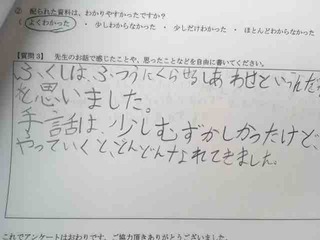 ② 配られた資料は、わかりやすかったですか？
(よくわかった ・ 少しわかった ・ 少しだけわかった ・ ほとんどわからなかった
【質問3】 先生のお話で感じたことや、思ったことなどを自由に書いてください。
ふくしは、ふつうにくらせるしあわせというんだ
を思いました。
手話は、少しむずかしかったけど、
やっていくと、どんどんなれてきました。
これでアンケートはおわりです。ご協力頂きありがとうございました。